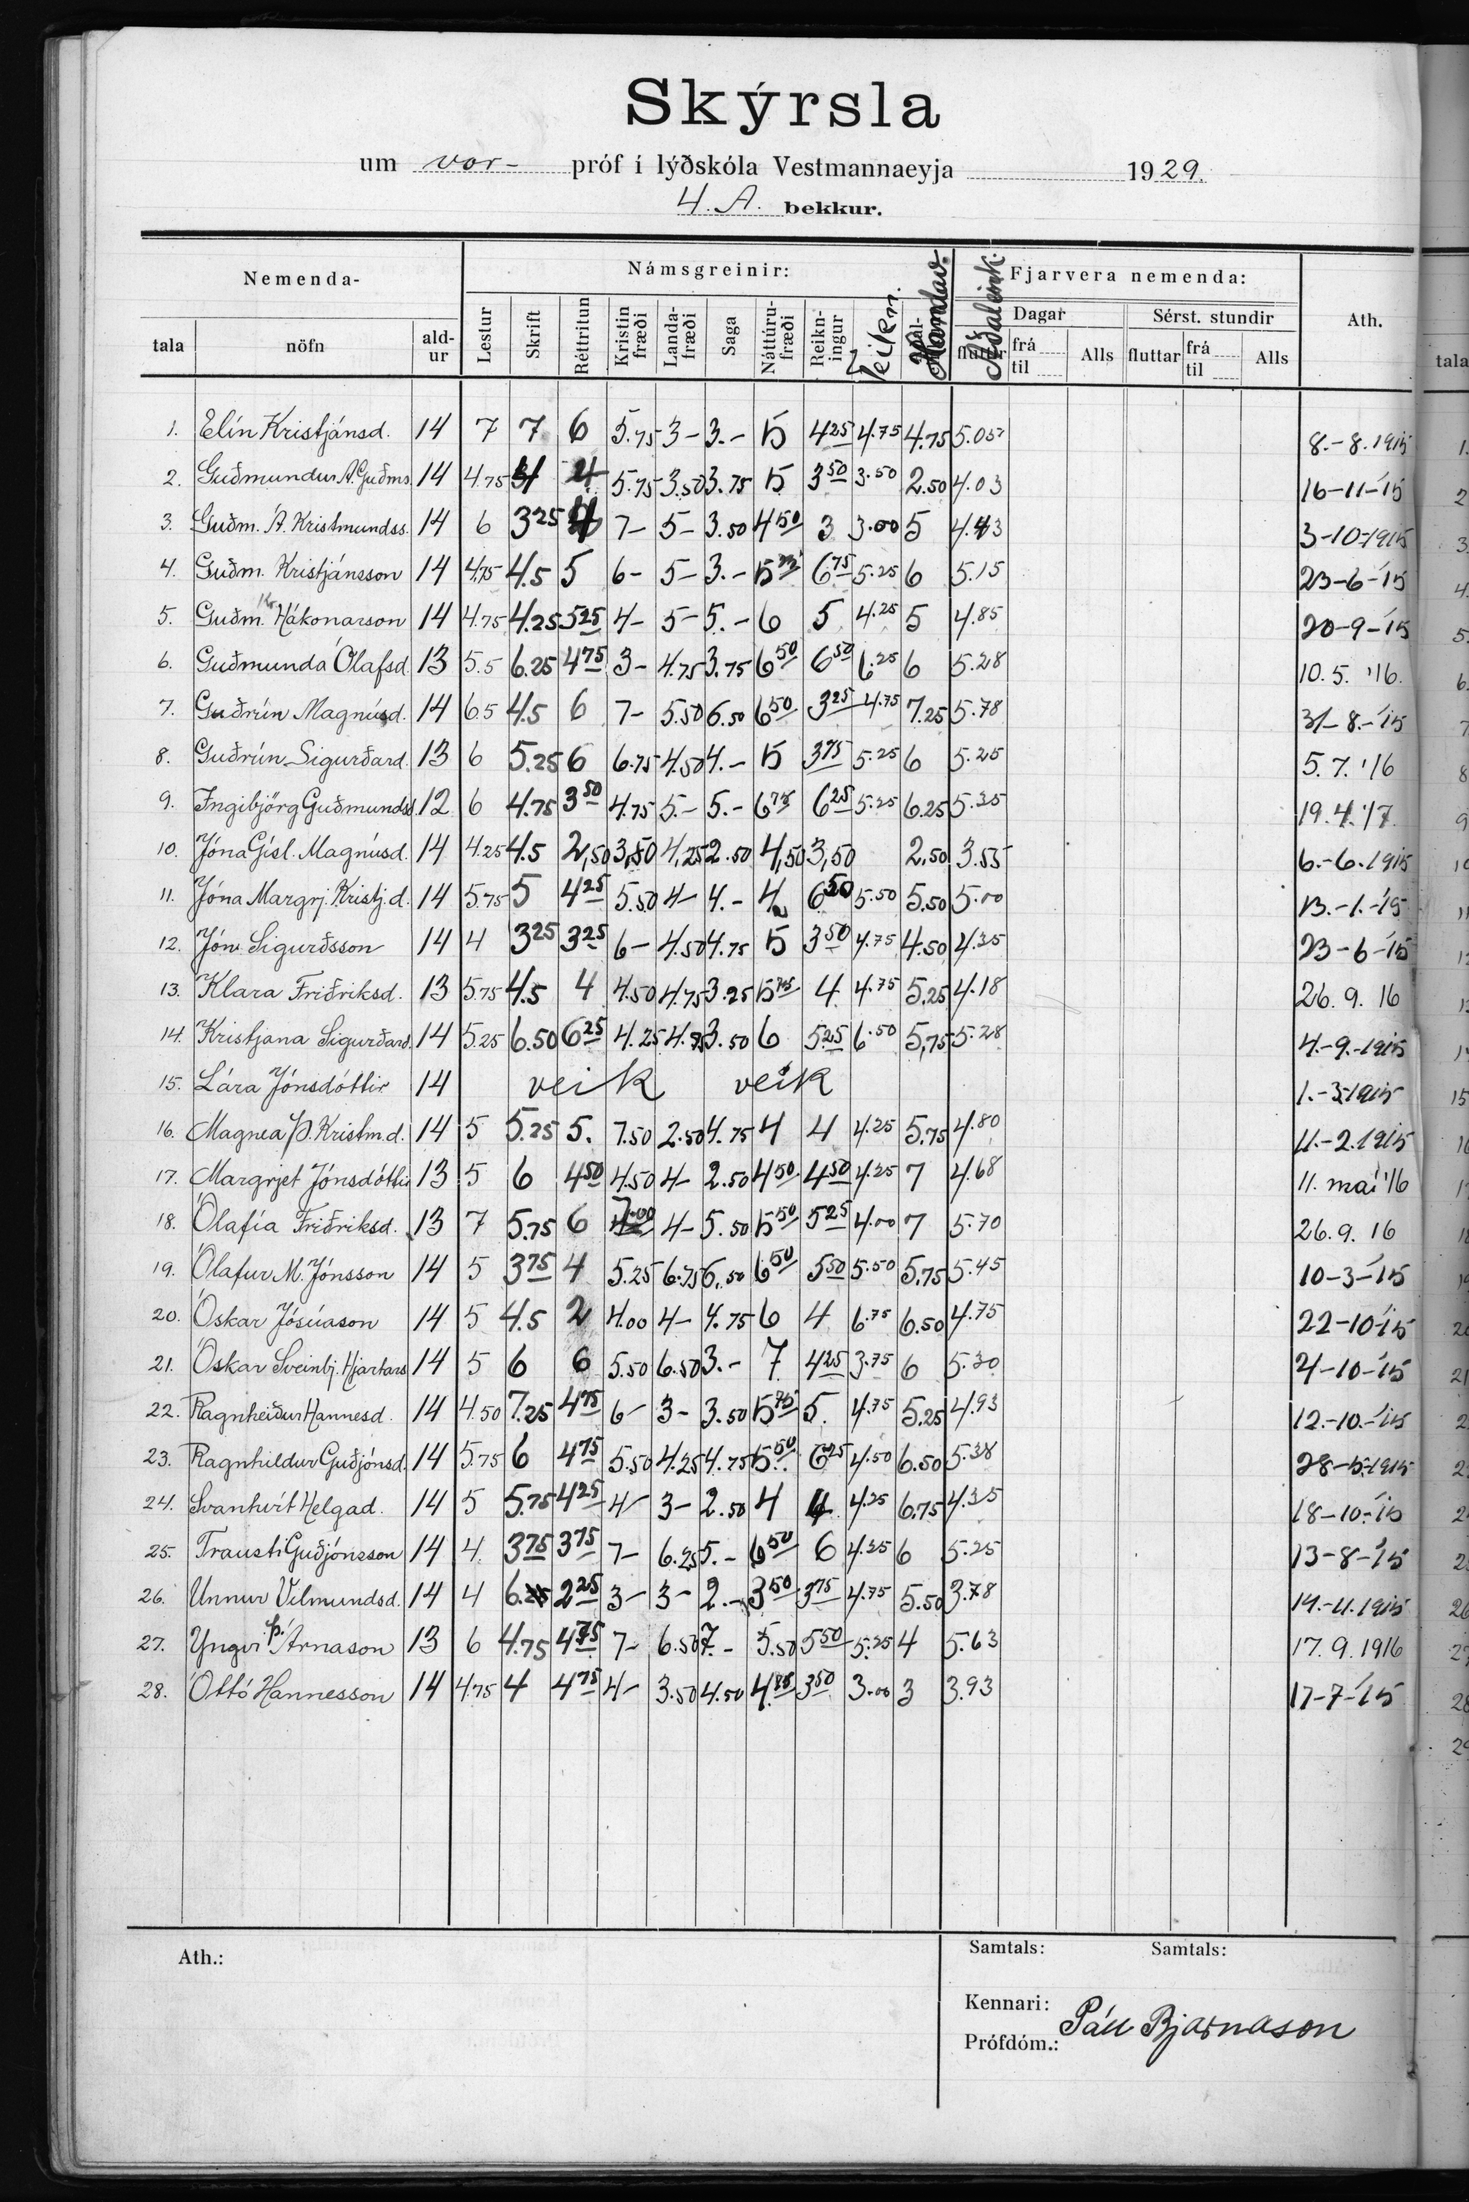 Skýrsla
um vor- próf í lýðskóla Vestmannaeyja 1929.
4. A. bekkur.
Nemenda- Námsgreinir: Fjarvera nemenda: Ath.
tala nöfn ald-ur Lestur Skrift Réttritun Kristin fræði Landa-fræði Saga Náttúru-fræði Reikn-ingur Teikn. Handav. Aðaleink. fluttar Dagar frá til Alls Sérst. stundir fluttar frá til Alls
1. Elín Kristjánsd. 14 7 7 6 5.75 3- 3.- 5 4 25 4.75 4.75 5.05 8.-8.1915
2. Guðmundur A. Guðms. 14 4.75 4 4 5.75 3.50 3.75 5 3 50 3.50 2.50 4.03 16-11-'15
3. Guðm. Á. Kristmundss. 14 6 3 25 4 7- 5- 3.50 4 50 3 3.00 5 4.43 3-10-1915
4. Guðm. Kristjánsson 14 4.75 4.5 5 6- 5- 3.- 5 6 75 5.25 6 5.15 23-6-'15
5. Guðm. Kr. Hákonarson 14 4.75 4.25 5 25 4- 5- 5.- 6 5 4.25 5 4.85 20-9-'15
6. Guðmunda Ólafsd. 13 5.5 6.25 4 75 3- 4.75 3.75 6 50 6 50 6.25 6 5.28 10.5. '16.
7. Guðrún Magnúsd. 14 6.5 4.5 6 7- 5.50 6.50 6 50 3 25 4.75 7.25 5.78 31-8.-'15
8. Guðrún Sigurðard. 13 6 5.25 6 6.75 4.50 4.- 5 3 75 5.25 6 5.25 5.7. '16
9. Ingibjörg Guðmundsd. 12 6 4.75 3 50 4.75 5.- 5.- 6 75 6 25 5.25 6.25 5.35 19.4.'17.
10. Jóna Gísl. Magnúsd. 14 4.25 4.5 2,50 3,50 4,25 2.50 4,50 3,50 2,50 3.55 6.-6.1915
11. Jóna Margrj. Kristj.d. 14 5.75 5 4 25 5.50 4- 4.- 4 6 50 5.50 5.50 5.00 13.-1.-'15
12. Jón Sigurðsson 14 4 3 25 3 25 6- 4.50 4.75 5 3 50 4.75 4.50 4.35 23-6-'15
13. Klara Friðriksd. 13 5.75 4.5 4 4.50 4.75 3.25 5 75 4 4.75 5.25 4.18 26.9. 16
14. Kristjana Sigurðard. 14 5.25 6.50 6 25 4.25 4.75 3.50 6 5 25 6.50 5,75 5.28 4.-9.-1915
15. Lára Jónsdóttir 14 veik veik 1.-3.1915
16. Magnea Þ. Kristm.d. 14 5 5.25 5. 7.50 2.50 4.75 4 4 4.25 5.75 4.80 11.-2.1915
17. Margrjet Jónsdóttir 13 5 6 4 50 4.50 4- 2.50 4 50 4 50 4.25 7 4.68 11. maí '16
18. Ólafía Friðriksd. 13 7 5.75 6 7.00 4- 5.50 5 50 5 25 4.00 7 5.70 26.9. 16
19. Ólafur M. Jónsson 14 5 3 75 4 5.25 6.75 6.50 6 50 5 50 5.50 5.75 5.45 10-3-'15
20. Óskar Jósúason 14 5 4.5 2 4.00 4- 4.75 6 4 6.75 6.50 4.75 22-10-'15
21. Óskar Sveinbj. Hjartars 14 5 6 6 5.50 6.50 3.- 7 4 25 3.75 6 5.30 4-10-'15
22. Ragnheiður Hannesd. 14 4.50 7.25 4 75 6- 3- 3.50 5 75 5. 4.75 5.25 4.93 12.-10.-'15
23. Ragnhildur Guðjónsd. 14 5.75 6 4 75 5.50 4.25 4.75 5 50 6 25 4.50 6.50 5.38 28-5-1915
24. Svanhvít Helgad. 14 5 5.75 4 25 4- 3- 2.50 4 4 4.25 6.75 4.35 18-10-'15
25. Trausti Guðjónsson 14 4 3 75 3 75 7- 6.25 5.- 6 50 6 4.25 6 5.25 13-8-'15
26. Unnur Vilmundsd. 14 4 6.25 2 25 3- 3- 2.- 3 50 3 75 4.75 5.50 3.78 19.-11.1915
27. Yngvi Þ. Árnason 13 6 4.75 4 75 7- 6.50 7.- 5.50 5 50 5.25 4 5.63 17.9.1916
28. Ottó Hannesson 14 4.75 4 4 75 4- 3.50 4.50 4 3 50 3.00 3 3.93 17-7-'15
Ath.: Samtals: Samtals:
Kennari: Páll Bjarnason
Prófdóm.: